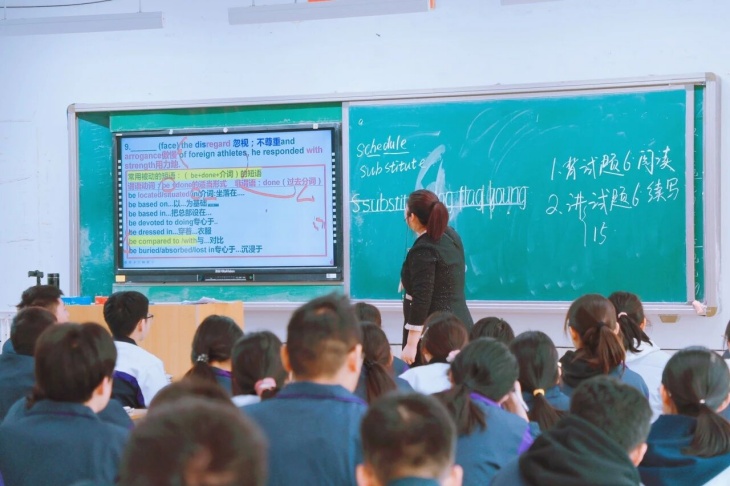 9.______ (face) the disregard 忽视；不尊重and
arrogance傲慢 of foreign athletes, he responded with
strength用力除.
常用被动的短语：（ be+done+介词）的短语
谓语动词：be +done的适当形式 非谓语：done（过去分词）
be located/situated in介词-坐落在....
be based on...以...为基础
be based in...把总部设在....
be devoted to doing专心于..
be dressed in...穿着...衣服
be compared to /with与...对比
be buried/absorbed/lost in专心于...沉浸于
Schedule
Substitute
1.背试题6阅读
2.讲试题6续写
15